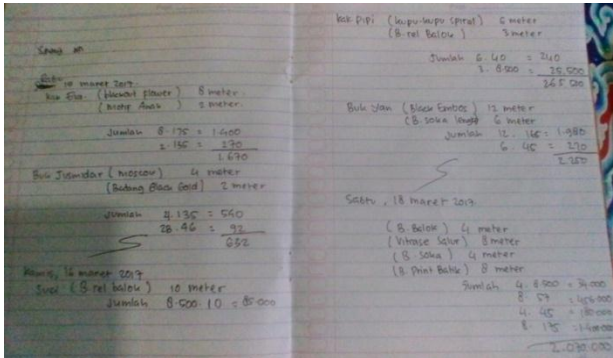 Rabu
15 maret 2017
Kak Eka. (blackout flower) 8 meter.
(Motip Anak) 2 meter.
Jumlah 8. 175 = 1.400
2. 135 = 270
1.670
Buk Jusmidar (moscow) 4 meter
(Batang Black Gold) 2 meter
Jumlah 4. 135 = 540
46 = 92
632
Kamis, 16 maret 2017
Susi (B. rel balok) 10 meter
Jumlah 8.500. 10 = 85.000
kak pipi (kupu-kupu spiral) 6 meter
(B. rel Balok) 3 meter
Jumlah 6. 40 = 240
3. 8.500 = 25.500
265.500
Buk Yan (Black Embos) 12 meter
(B. soka lengkap 6 meter
Jumlah 12. 165 = 1.980
6. 45 = 270
2.250
Sabtu, 18 maret 2017
(B. Balok) 4 meter
(Vitrase Salur) 8 meter
(B. Soka) 4 meter
(B. Print Batik) 8 meter
Jumlah 4. 8.500 = 34.000
8. 57 = 456.000
4. 45 = 180.000
8. 175 = 1.400.000
2.070.000